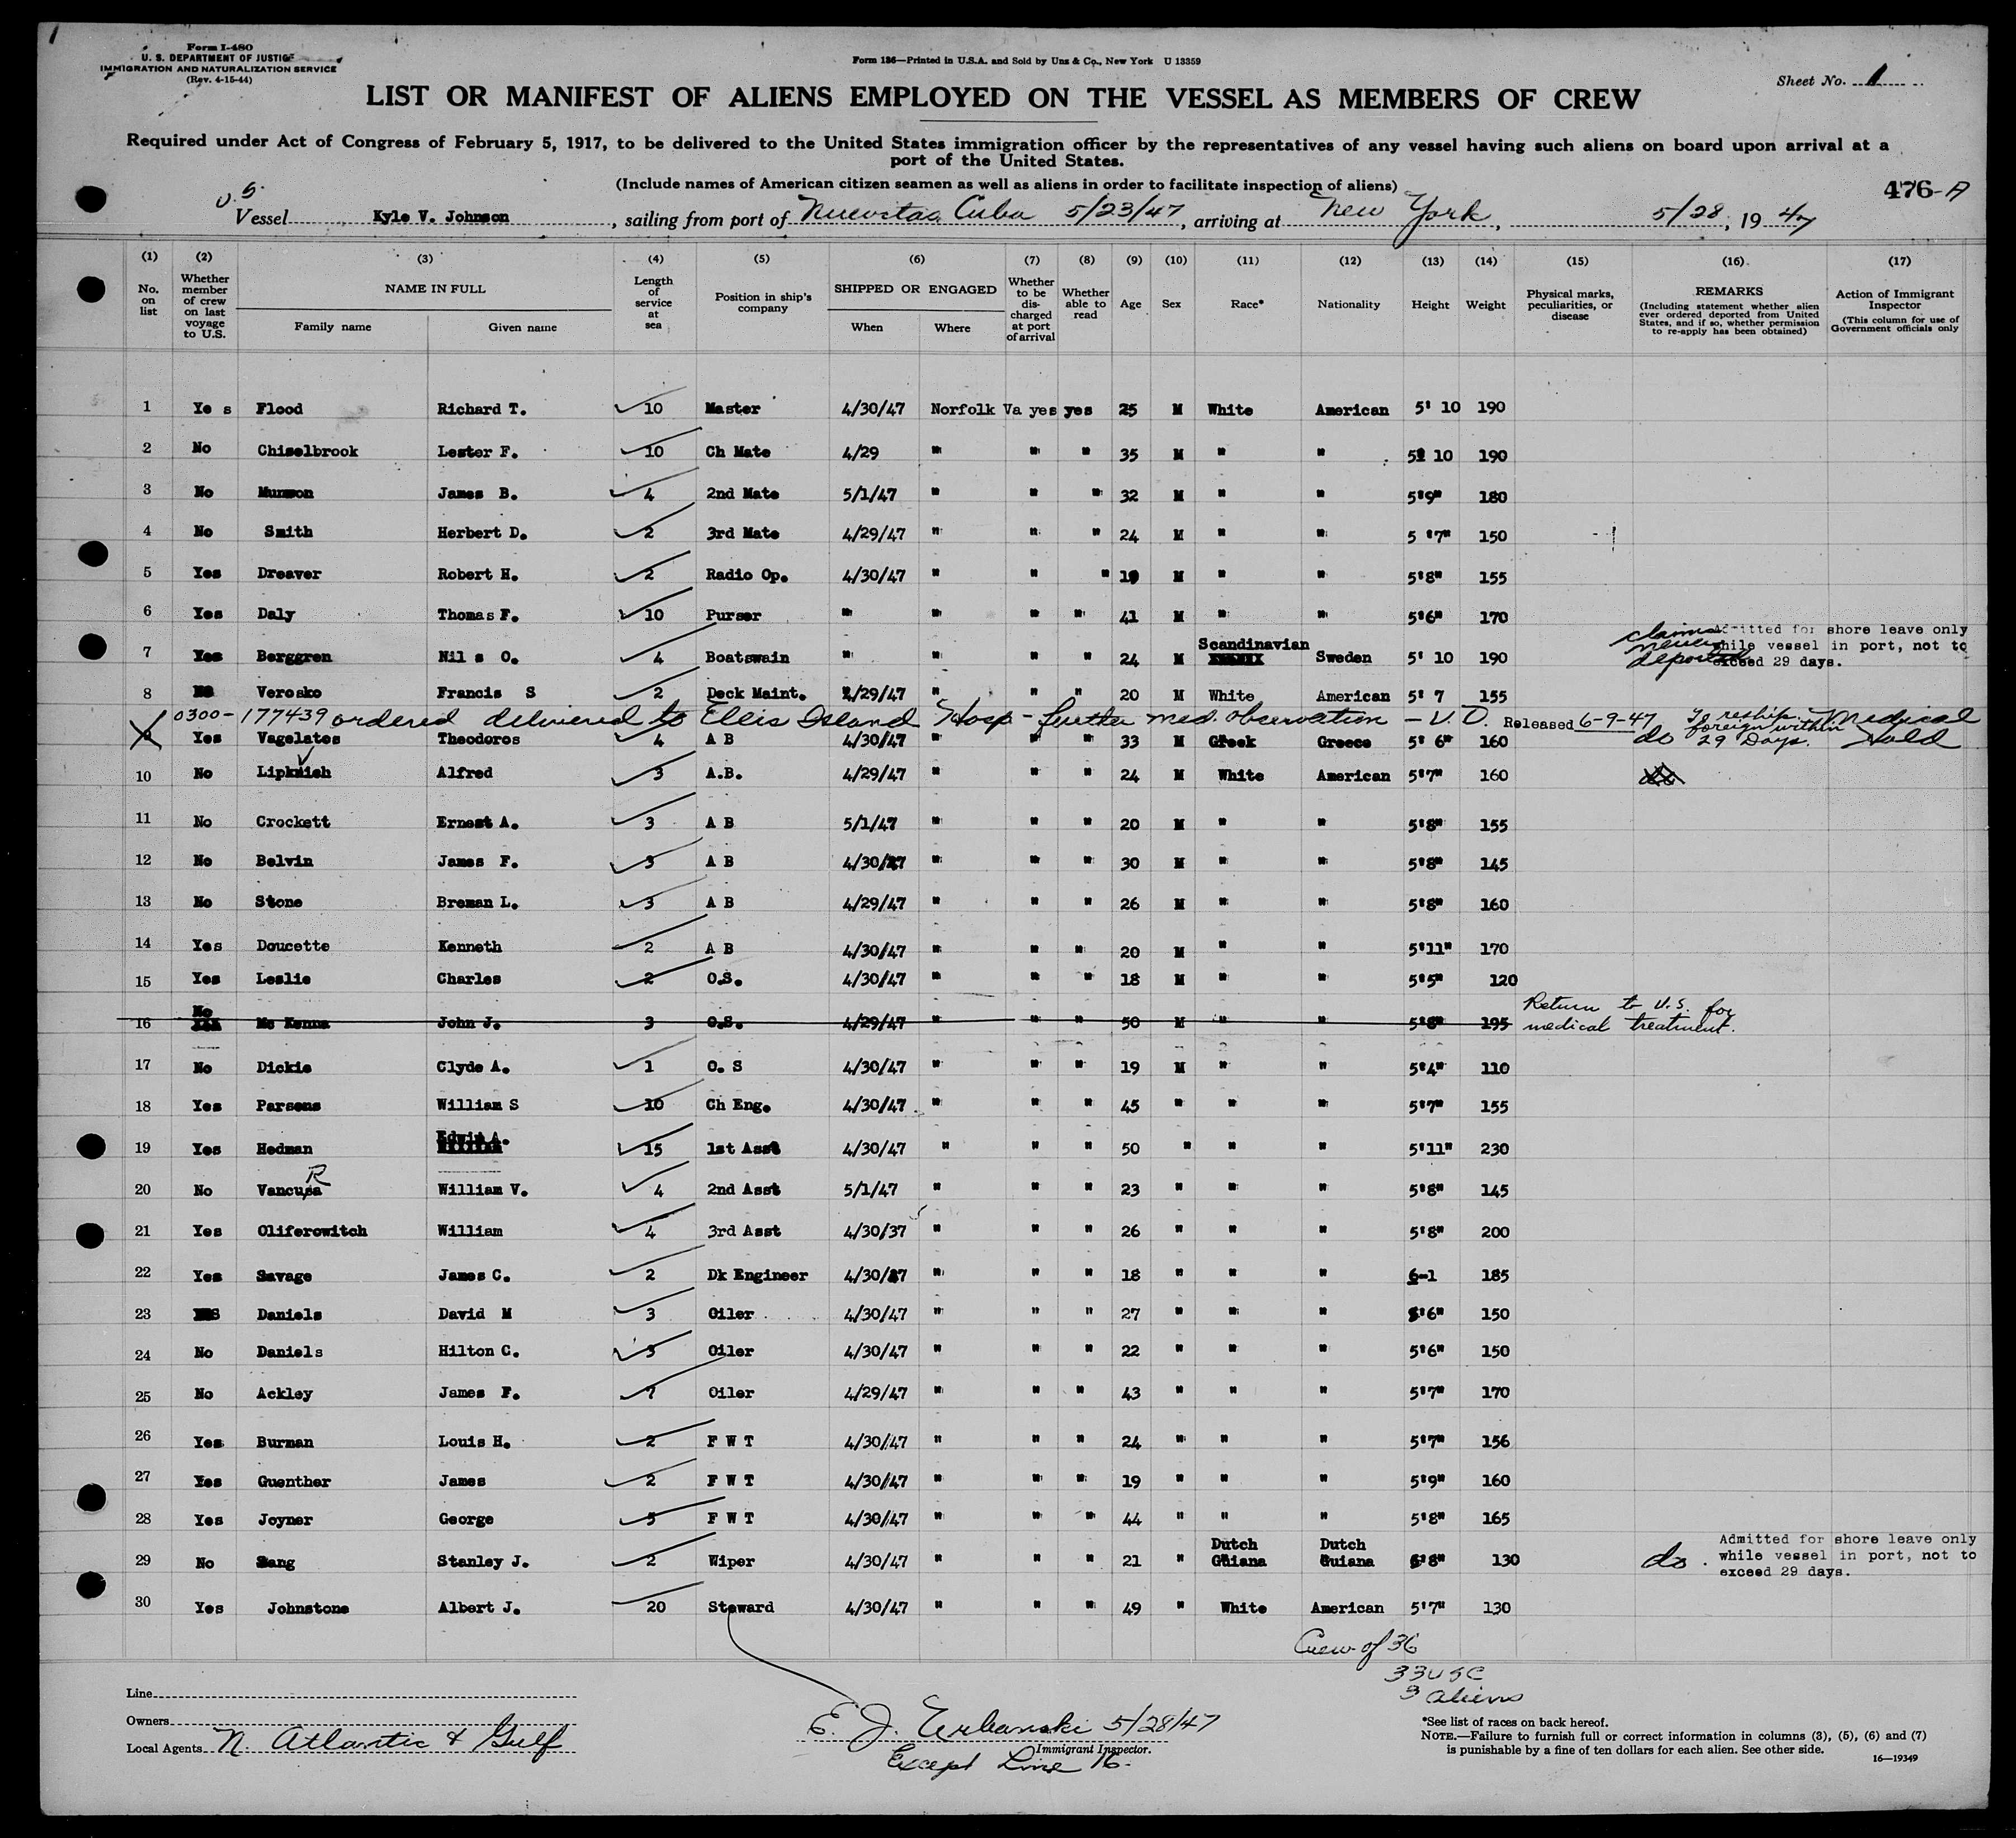 1
Form I-480
U. S. DEPARTMENT OF JUSTICE
IMMIGRATION AND NATURALIZATION SERVICE
(Rev. 4-15-44)
Form 136—Printed in U.S.A. and Sold by Unz & Co., New York U 13359
Sheet No. 1
LIST OR MANIFEST OF ALIENS EMPLOYED ON THE VESSEL AS MEMBERS OF CREW
Required under Act of Congress of February 5, 1917, to be delivered to the United States immigration officer by the representatives of any vessel having such aliens on board upon arrival at a
port of the United States.
(Include names of American citizen seamen as well as aliens in order to facilitate inspection of aliens)
476-A
U.S. Vessel Kyle V. Johnson, sailing from port of Nuevitas Cuba 5/23/47, arriving at New York, 5/28, 19 47
(1) (2) (3) (4) (5) (6) (7) (8) (9) (10) (11) (12) (13) (14) (15) (16) (17)
No. on list
Whether member of crew on last voyage to U.S.
NAME IN FULL
Family name Given name
Length of service at sea
Position in ship's company
SHIPPED OR ENGAGED
When Where
Whether to be discharged at port of arrival
Whether able to read
Age
Sex
Race*
Nationality
Height
Weight
Physical marks, peculiarities, or disease
REMARKS
(Including statement whether alien ever ordered deported from United States, and if so, whether permission to re-apply has been obtained)
Action of Immigrant Inspector
(This column for use of Government officials only
1 Ye s Flood Richard T. 10 Master 4/30/47 Norfolk Va yes yes 25 M White American 5' 10 190
2 No Chiselbrook Lester F. 10 Ch Mate 4/29 " " " 35 M " " 5' 10 190
3 No Munson James B. 4 2nd Mate 5/1/47 " " " 32 M " " 5'9" 180
4 No Smith Herbert D. 2 3rd Mate 4/29/47 " " " 24 M " " 5 '7" 150
5 Yes Dreaver Robert H. 2 Radio Op. 4/30/47 " " " 19 M " " 5'8" 155
6 Yes Daly Thomas F. 10 Purser " " " " 41 M " " 5'6" 170
7 Yes Berggren Nil s O. 4 Boatswain " " " " 24 M Scandinavian Sweden 5' 10 190 claims never deported Admitted for shore leave only
while vessel in port, not to
exceed 29 days.
8 Verosko Francis S 2 Deck Maint. 4/29/47 " " " 20 M White American 5' 7 155
0300-177439 ordered delivered to Ellis Island Hosp - further med. observation - V.D. Released 6-9-47 To reship foreign within 29 Days. Medical Hold
9 Yes Vagelates Theodoros 4 A B 4/30/47 " " " 33 M Greek Greece 5' 6" 160 do
10 No Lipknish Alfred 3 A.B. 4/29/47 " " " 24 M White American 5'7" 160
11 No Crockett Ernest A. 3 A B 5/1/47 " " " 20 M " " 5'8" 155
12 No Belvin James F. 3 A B 4/30/47 " " " 30 M " " 5'8" 145
13 No Stone Breman L. 3 A B 4/29/47 " " " 26 M " " 5'8" 160
14 Yes Doucette Kenneth 2 A B 4/30/47 " " " 20 M " " 5'11" 170
15 Yes Leslie Charles 2 O.S. 4/30/47 " " " 18 M " " 5'5" 120
16 No Mc Kenna John J. 3 O.S. 4/29/47 " " " 50 M " " 5'8" 195 Return to U.S. for
medical treatment.
17 No Dickie Clyde A. 1 O. S 4/30/47 " " " 19 M " " 5'4" 110
18 Yes Parsons William S 10 Ch Eng. 4/30/47 " " " 45 " " " 5'7" 155
19 Yes Hedman Edwin A. 15 1st Asst 4/30/47 " " " 50 " " " 5'11" 230
20 No Vancura R William V. 4 2nd Asst 5/1/47 " " " 23 " " " 5'8" 145
21 Yes Oliferowitch William 4 3rd Asst 4/30/37 " " " 26 " " " 5'8" 200
22 Yes Savage James C. 2 Dk Engineer 4/30/47 " " " 18 " " " 6-1 185
23 Daniels David M 3 Oiler 4/30/47 " " " 27 " " " 5'6" 150
24 No Daniels Hilton C. 3 Oiler 4/30/47 " " " 22 " " " 5'6" 150
25 No Ackley James F. 7 Oiler 4/29/47 " " " 43 " " " 5'7" 170
26 Yes Burman Louis H. 2 F W T 4/30/47 " " " 24 " " " 5'7" 156
27 Yes Guenther James 2 F W T 4/30/47 " " " 19 " " " 5'9" 160
28 Yes Joyner George 5 F W T 4/30/47 " " " 44 " " " 5'8" 165
29 No Sang Stanley J. 2 Wiper 4/30/47 " " " 21 " Dutch Guiana Dutch Guiana 5'8" 130 do. Admitted for shore leave only
while vessel in port, not to
exceed 29 days.
30 Yes Johnstone Albert J. 20 Steward 4/30/47 " " " 49 " White American 5'7" 130
Crew of 36
33 USC
3 aliens
Line
Owners
Local Agents N. Atlantic & Gulf
E. J. Urbanski 5/28/47
Immigrant Inspector.
Except Line 16.
*See list of races on back hereof.
NOTE.—Failure to furnish full or correct information in columns (3), (5), (6) and (7)
is punishable by a fine of ten dollars for each alien. See other side.
16—19349